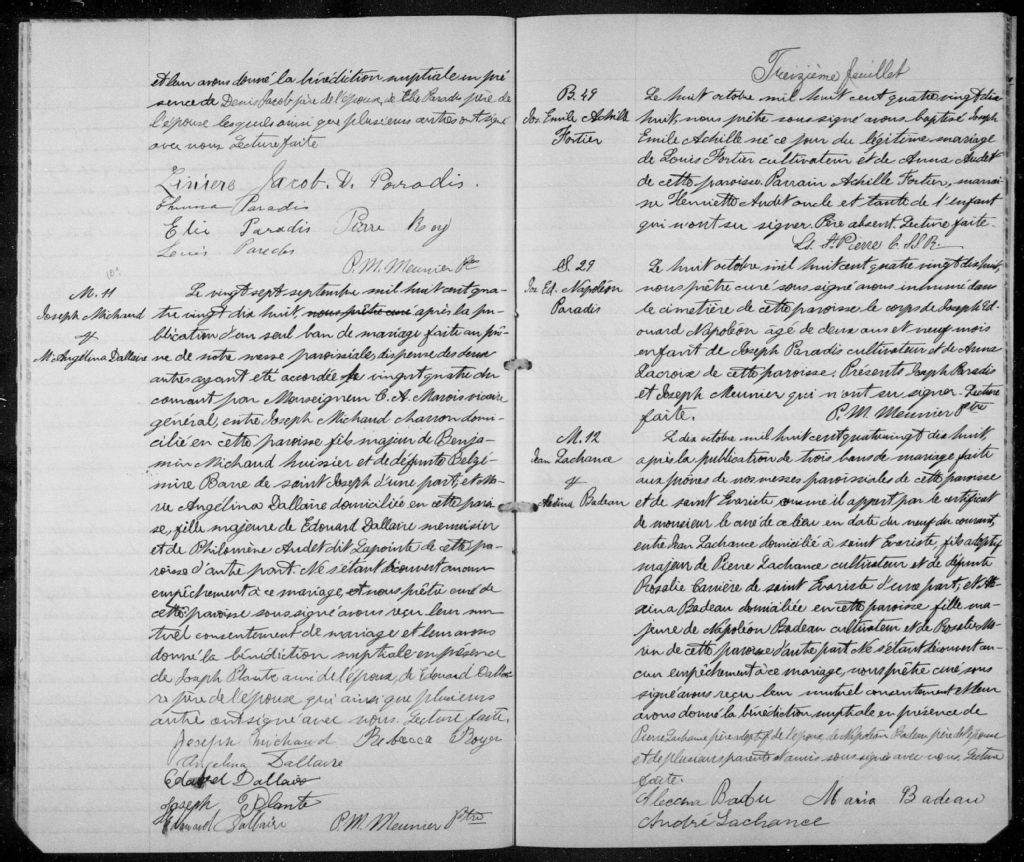 et leur avons donné la bénédiction nuptiale en pré
sence de Denis Jacob père de l'époux, de Elie Paradis père de
l'épouse lesquels ainsi que plusieurs autres ont signé
avec nous Lecture faite
Liniers Jacob. D. Paradis.
Emma Paradis
Elie Paradis Pierre Roy
Louis Paradis
P. M. Meunier Ptre
M. 11
Joseph Michaud
&
M. Angelina Dallaire
Le vingt sept septembre mil huit cent qua
tre vingt dix huit, nous prêtre curé après la pu
blication d'un seul ban de mariage faite au prô
ne de notre messe paroissiale, dispense des deux
autres ayant été accordée le vingt quatre du
courant par Monseigneur C. A. Marois vicaire
général, entre Joseph Michaud charron domi
cilié en cette paroisse fils majeur de Benja
min Michaud huissier et de défunte Belzé
mire Barre de saint Joseph d'une part; et Ma
rie Angélina Dallaire domiciliée en cette parois
se, fille majeure de Edouard Dallaire menuisier
et de Philomène Audet dit Lapointe de cette pa
roisse d'autre part. Ne s'étant découvert aucun
empêchement à ce mariage, et nous prêtre curé de
cette paroisse soussigné avons reçu leur mu
tuel consentement de mariage et leur avons
donné la bénédiction nuptiale en présence
de Joseph Plante ami de l'époux, de Edouard Dallai
re père de l'épouse qui ainsi que plusieurs
autre ont signé avec nous. Lecture faite.
Joseph Michaud Rebecca Royer
Angelina Dallaire
Edouard Dallaire
Joseph Plante
Edouard Dallaire P. M. Meunier Ptre
Treizième feuillet
B. 49
Jos. Emile Achille
Fortier
Le huit octobre mil huit cent quatre vingt dix
huit, nous prêtre soussigné avons baptisé Joseph
Emile Achille né ce jour du légitime mariage
de Louis Fortier cultivateur et de Anna Audet
de cette paroisse. Parrain Achille Fortier, marrai
ne Henriette Audet oncle et tante de l'enfant
qui n'ont su signer. Père absent. Lecture faite.
Ls. St Pierre C. SS. R.
S. 29
Jos Ed. Napoléon
Paradis
Le huit octobre mil huit cent quatre vingt dix huit,
nous prêtre curé soussigné avons inhumé dans
le cimetière de cette paroisse le corps de Joseph Ed
ouard Napoléon âgé de deux ans et neuf mois
enfant de Joseph Paradis cultivateur et de Anna
Lacroix de cette paroisse. Présents Joseph Paradis
et Joseph Meunier qui n'ont su signer. Lecture
faite. P. M. Meunier Ptre
M. 12
Jean Lachance
&
Badeau
Le dix octobre mil huit cent quatre vingt dix huit,
après la publication de trois bans de mariage faite
aux prônes de nos messes paroissiales de cette paroisse
et de saint Evariste comme il appert par le certificat
de monsieur le curé de ce lieu en date du neuf du courant,
entre Jean Lachance domicilié à saint Evariste, fils adoptif
majeur de Pierre Lachance cultivateur et de défunte
Rosalie Carrière de saint Evariste d'une part; et
Badeau domiciliée en cette paroisse fille ma
jeure de Napoléon Badeau cultivateur et de Rosalie Mo
rin de cette paroisse d'autre part. Ne s'étant découvert au
cun empêchement à ce mariage, nous prêtre curé, sous
signé avons reçu leur mutuel consentement et leur
avons donné la bénédiction nuptiale en présence de
Pierre Lachance père adoptif de l'époux de Napoléon Badeau père de l'épouse
et de plusieurs parents et amis soussignés avec nous. Lecture
faite.
Badeu Maria Badeau
André Lachance